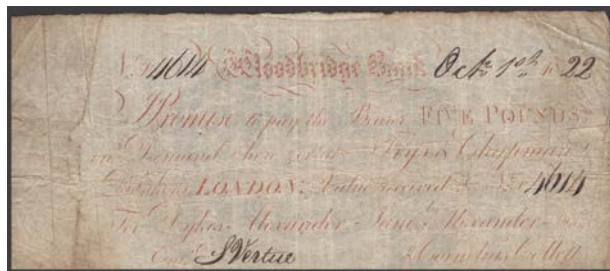 No. 4614 Woodbridge Bank Octr. 1st 1822
I Promise to pay the Bearer FIVE POUNDS,
on Demand here or at Frys & Chapman
Bankers LONDON. Value received No. 4614
For Dykes Alexander Alexander
Entd. S Vertue